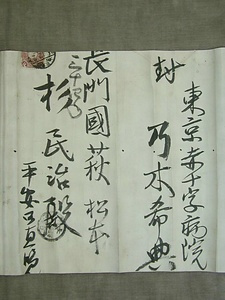 東京赤十字病院
封
乃木希典
長門國萩松本
三十四号
杉民治殿
平安